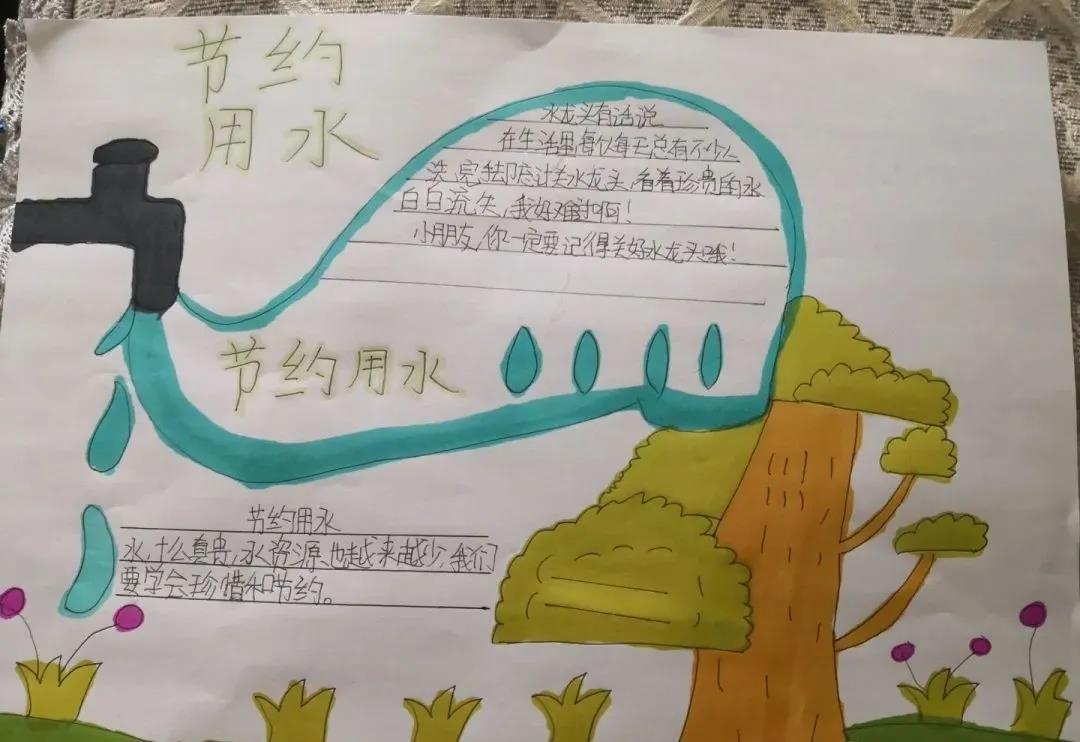 节约
用水
水龙头有话说
在生活里,每天总有不少人
洗完关水龙头,看着珍贵的水
白白流失,我好难过啊!
小朋友,你一定要记得关好水龙头哦!
节约用水
节约用水
水,什么真贵,水资源也越来越少,我们
要学会珍惜和节约。